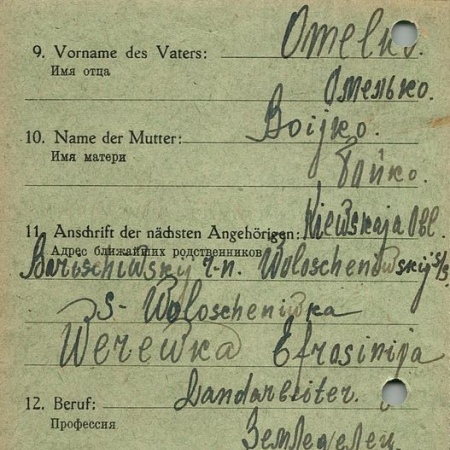 9. Vorname des Vaters: Omelko.
Имя отца
Омелько.
10. Name der Mutter: Boijko.
Имя матери
Бойко.
11. Anschrift der nächsten Angehörigen: Kiewskaja Obl.
Адрес ближайших родственников
Barischiwsky r-n. Woloscheniwskij s/s
s- Woloscheniwka
Werewka Efrosinija
12. Beruf: Landarbeiter.
Профессия
Земледелец.